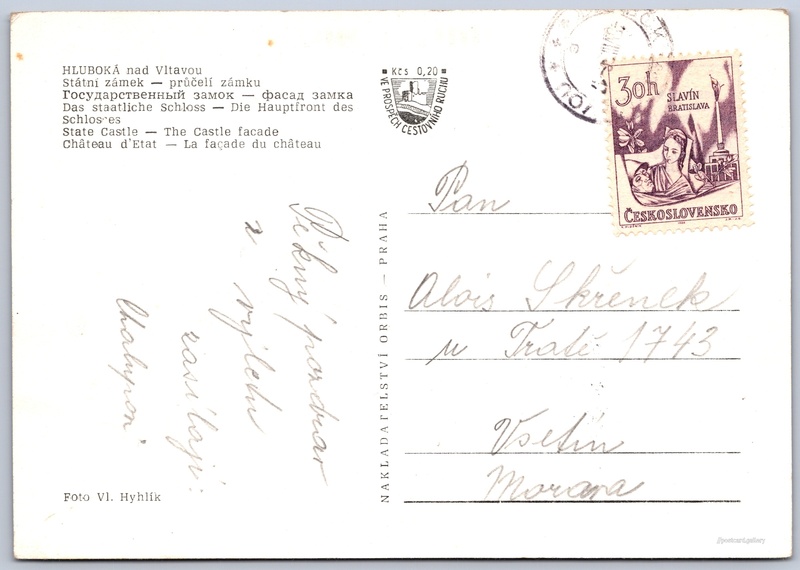 HLUBOKÁ nad Vltavou
Státní zámek — průčelí zámku
Государственный замок — фасад замка
Das staatliche Schloss — Die Hauptfront des
Schlosses
State Castle — The Castle facade
Château d'Etat — La façade du château
Kčs 0,20
VE PROSPĚCH CESTOVNÍHO RUCHU
30h
SLAVÍN
BRATISLAVA
ČESKOSLOVENSKO
Pěkný pozdrav
z výletu
zasílají:
NAKLADATELSTVÍ ORBIS — PRAHA
Pan
Alois Skřenek
u Tratě 1743
Vsetín
Morava
Foto Vl. Hyhlík